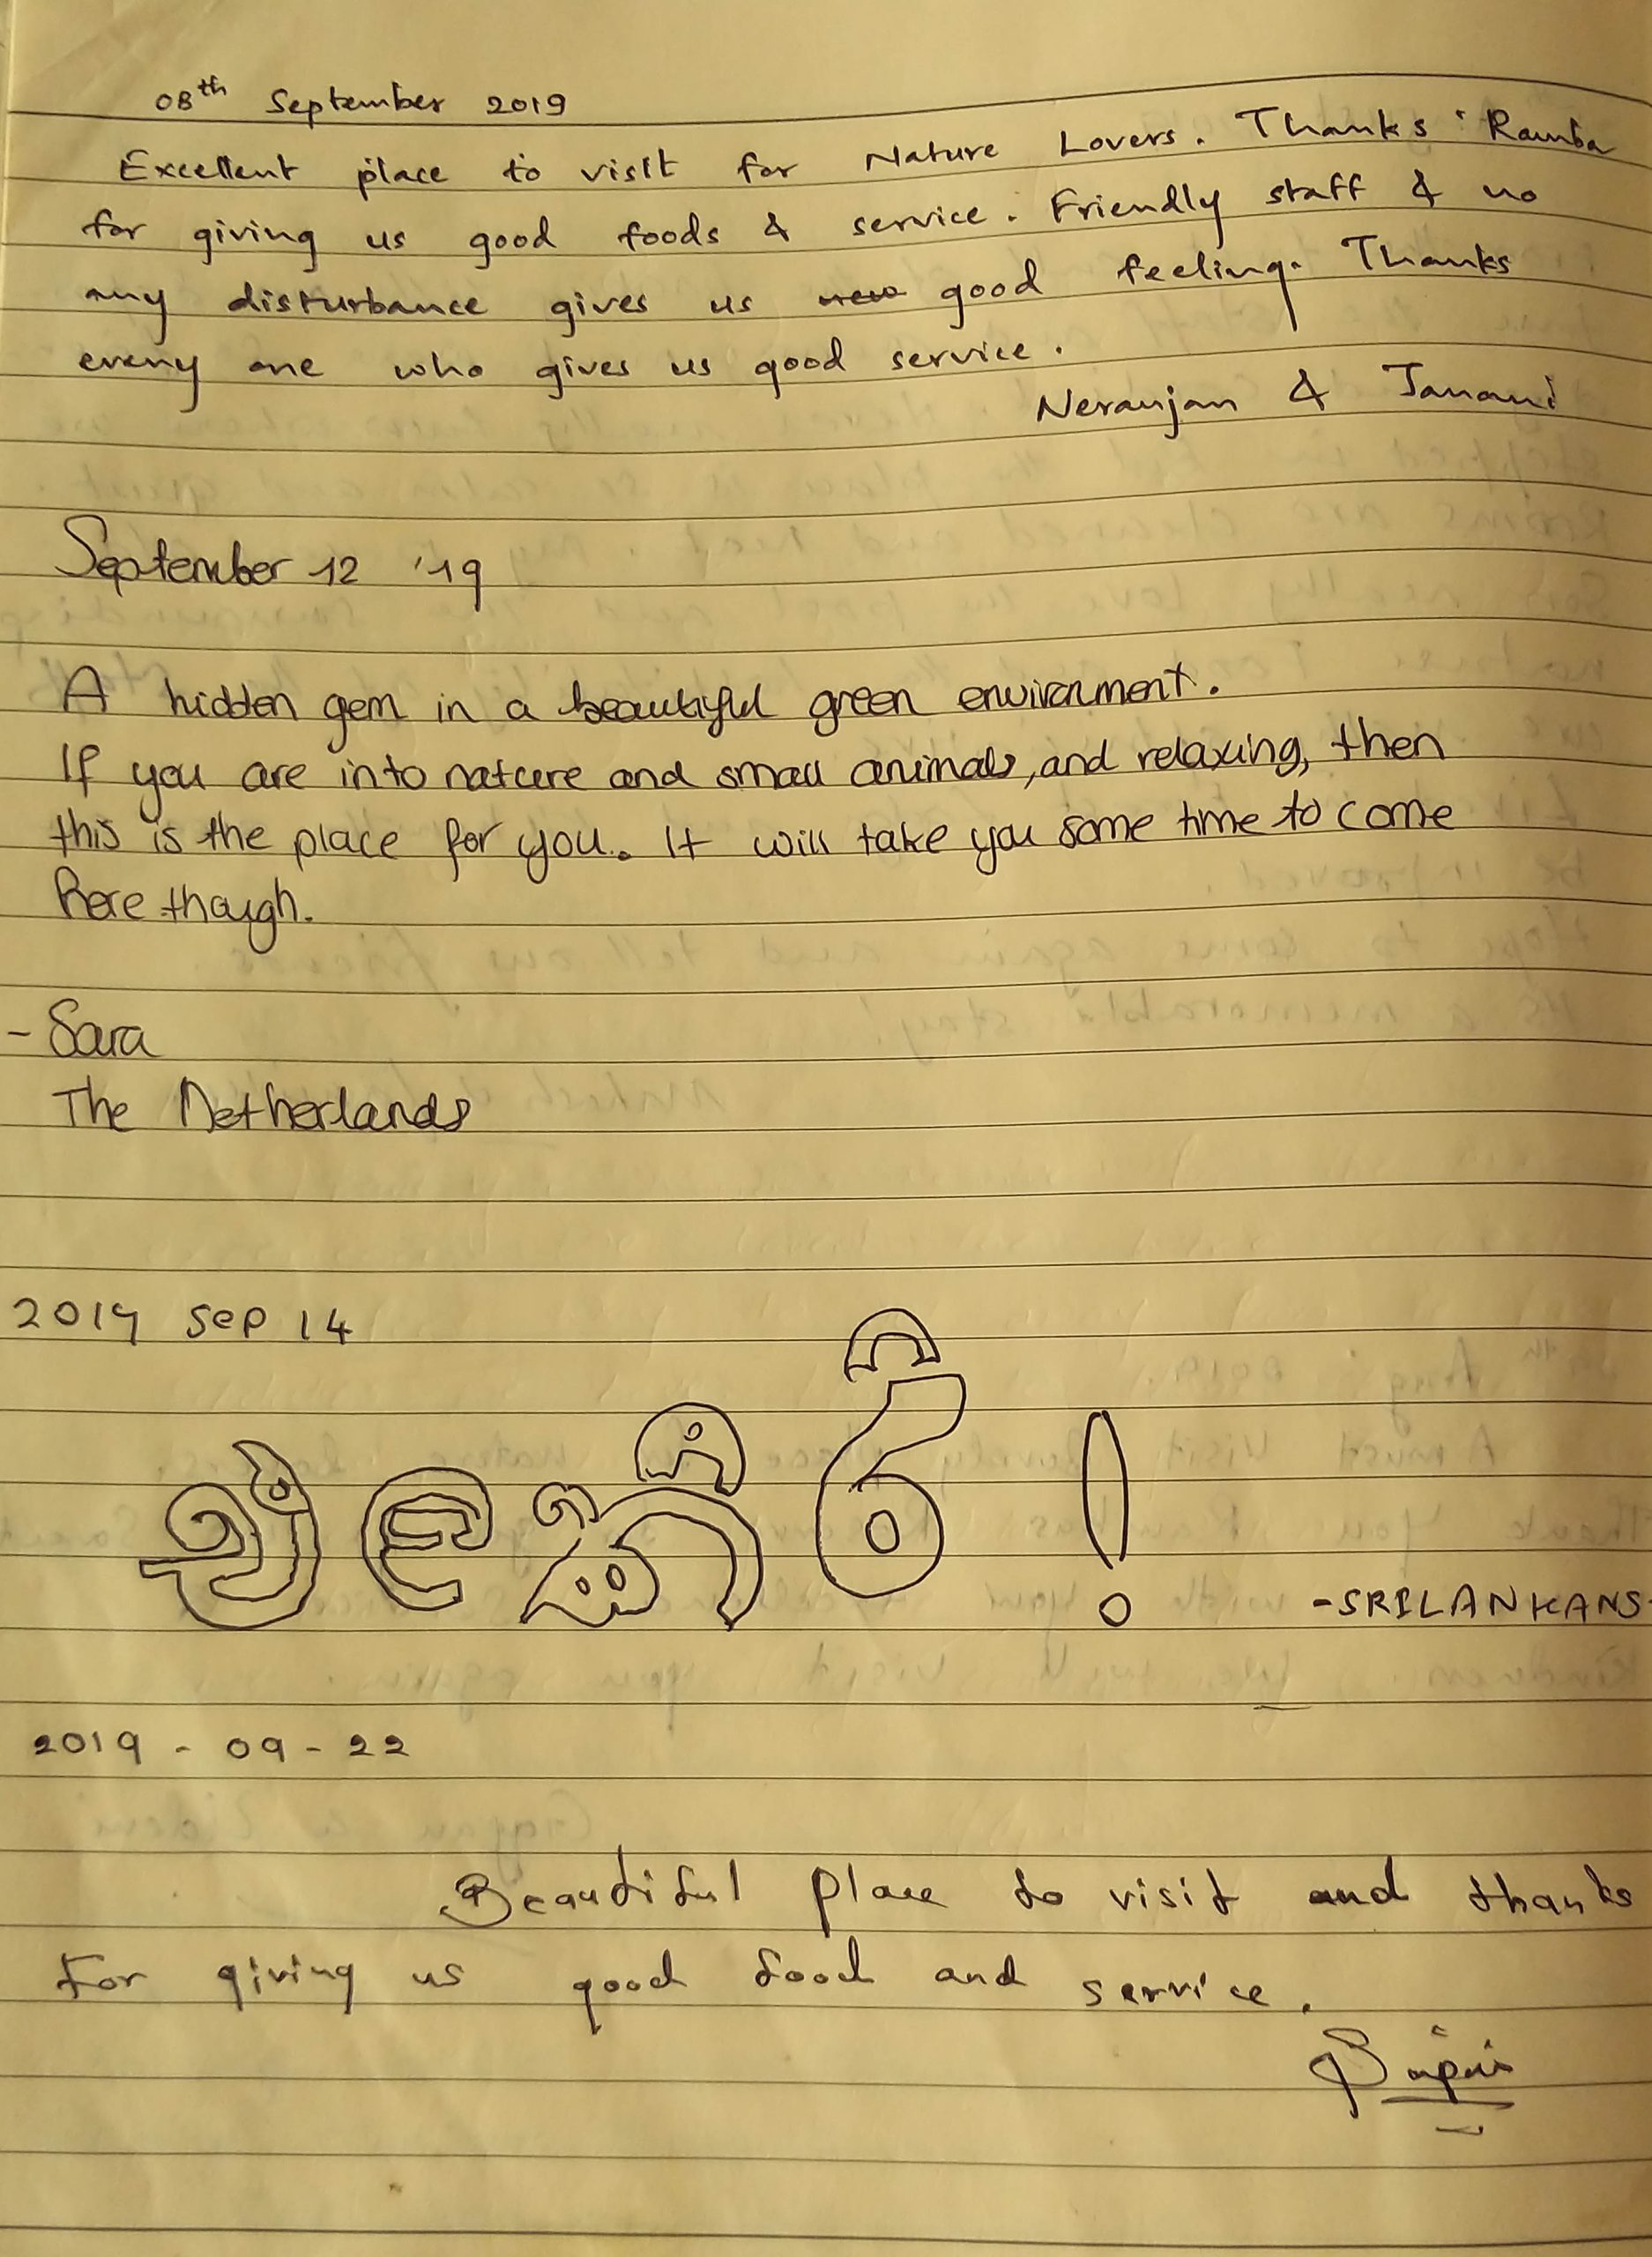 08th September 2019
Excellent place to visit for Nature Lovers. Thanks Ramba
for giving us good foods & service. Friendly staff & no
any disturbance gives us good feeling. Thanks
every one who gives us good service.
Neranjan & Janani
September 12 '19
A hidden gem in a beautiful green environment.
If you are into nature and small animals, and relaxing, then
this is the place for you. It will take you some time to come
here though.
- Sara
The Netherlands
2019 Sep 14
එළකිරි!
-SRILANKANS-
2019 - 09 - 22
Beautiful place to visit and thanks
For giving us good food and service.